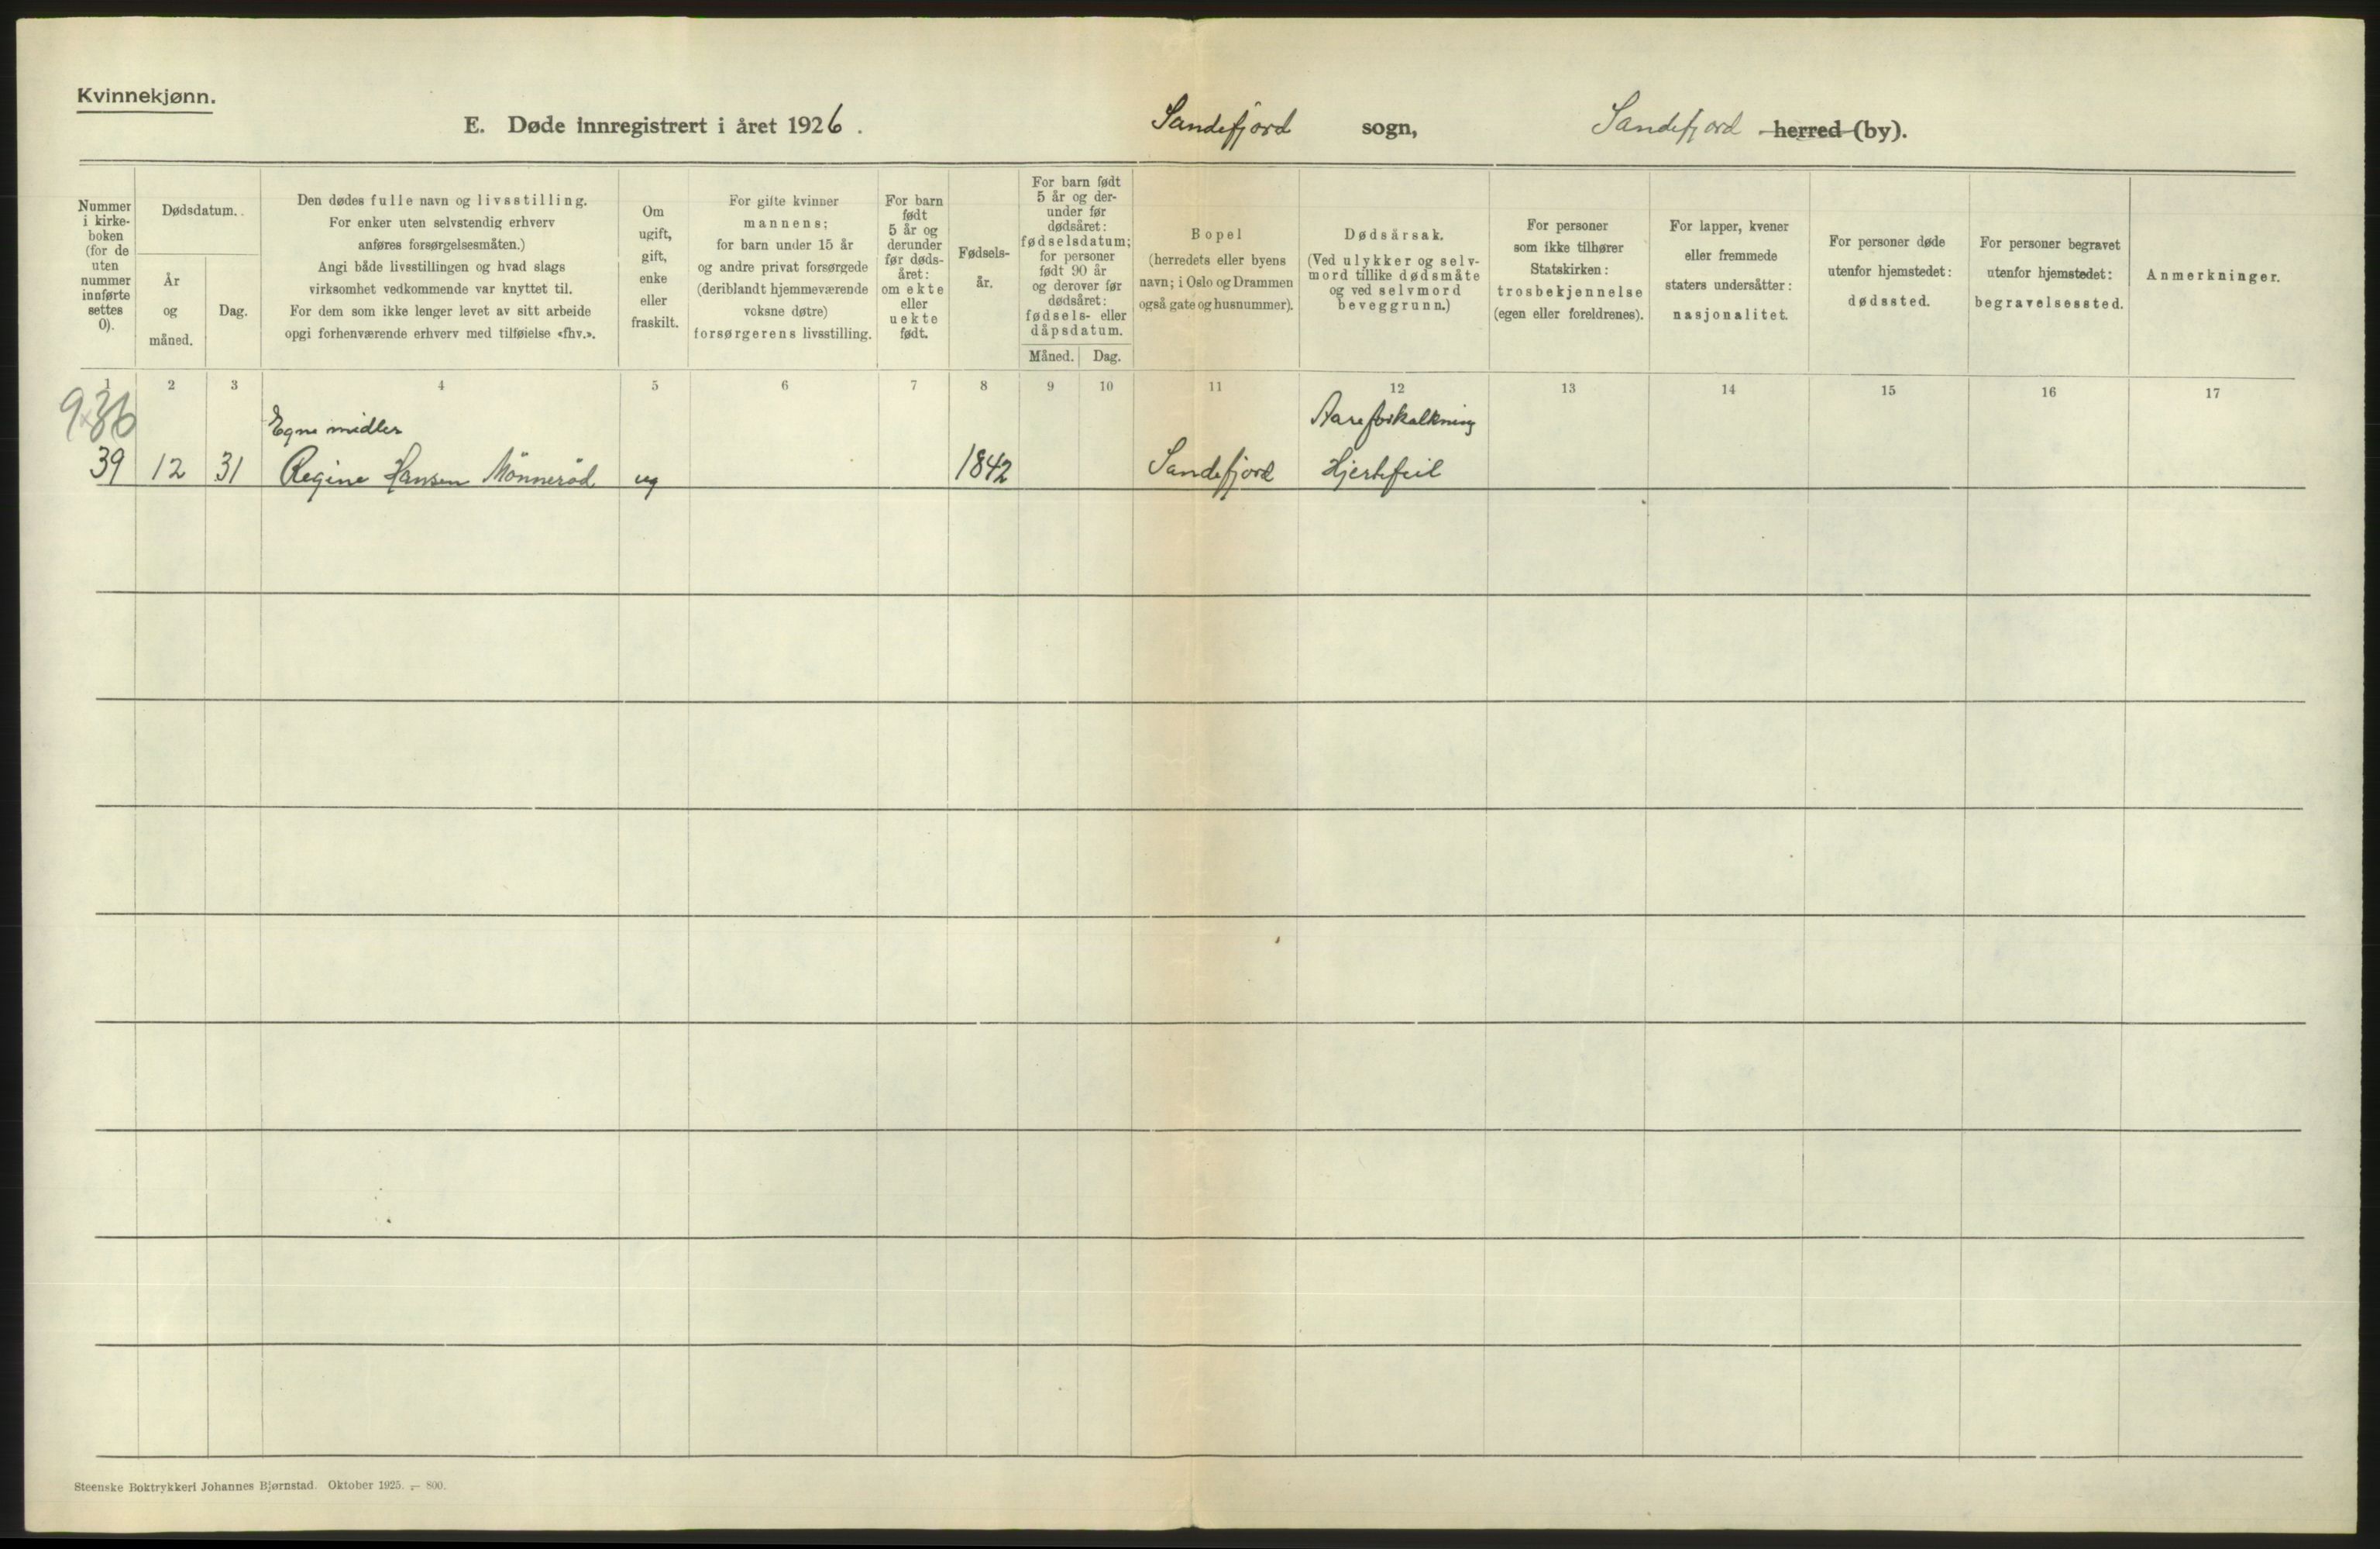 Kvinnekjønn.
E. Døde innregistrert i året 1926. Sandefjord sogn, Sandefjord herred (by).
Nummer
i kirke-
boken
(for de
uten
nummer
innførte
settes
0).
Dødsdatum.
År
og
måned.
Dag.
Den dødes fulle navn og livsstilling.
For enker uten selvstendig erhverv
anføres forsørgelsesmåten.)
Angi både livsstillingen og hvad slags
virksomhet vedkommende var knyttet til.
For dem som ikke lenger levet av sitt arbeide
opgi forhenværende erhverv med tilføielse «fhv.».
Om
ugift,
gift,
enke
eller
fraskilt.
For gifte kvinner
mannens;
for barn under 15 år
og andre privat forsørgede
(deriblandt hjemmeværende
voksne døtre)
forsørgerens livsstilling.
For barn
født
5 år og
derunder
før døds-
året:
om ekte
eller
uekte
født.
Fødsels-
år.
For barn født
5 år og der-
under før
dødsåret:
fødselsdatum;
for personer
født 90 år
og derover før
dødsåret:
fødsels- eller
dåpsdatum.
Måned. Dag.
Bopel
(herredets eller byens
navn; i Oslo og Drammen
også gate og husnummer).
Dødsårsak.
(Ved ulykker og selv-
mord tillike dødsmåte
og ved selvmord
beveggrunn.)
For personer
som ikke tilhører
Statskirken:
trosbekjennelse
(egen eller foreldrenes).
For lapper, kvener
eller fremmede
staters undersåtter:
nasjonalitet.
For personer døde
utenfor hjemstedet:
dødssted.
For personer begravet
utenfor hjemstedet:
begravelsessted.
Anmerkninger.
1 2 3 4 5 6 7 8 9 10 11 12 13 14 15 16 17
Egne midler Aareforkalkning
39 12 31 Regine Hansen Mönneröd ug 1842 Sandefjord Hjertefeil
Steenske Boktrykkeri Johannes Bjørnstad. Oktober 1925. — 800.